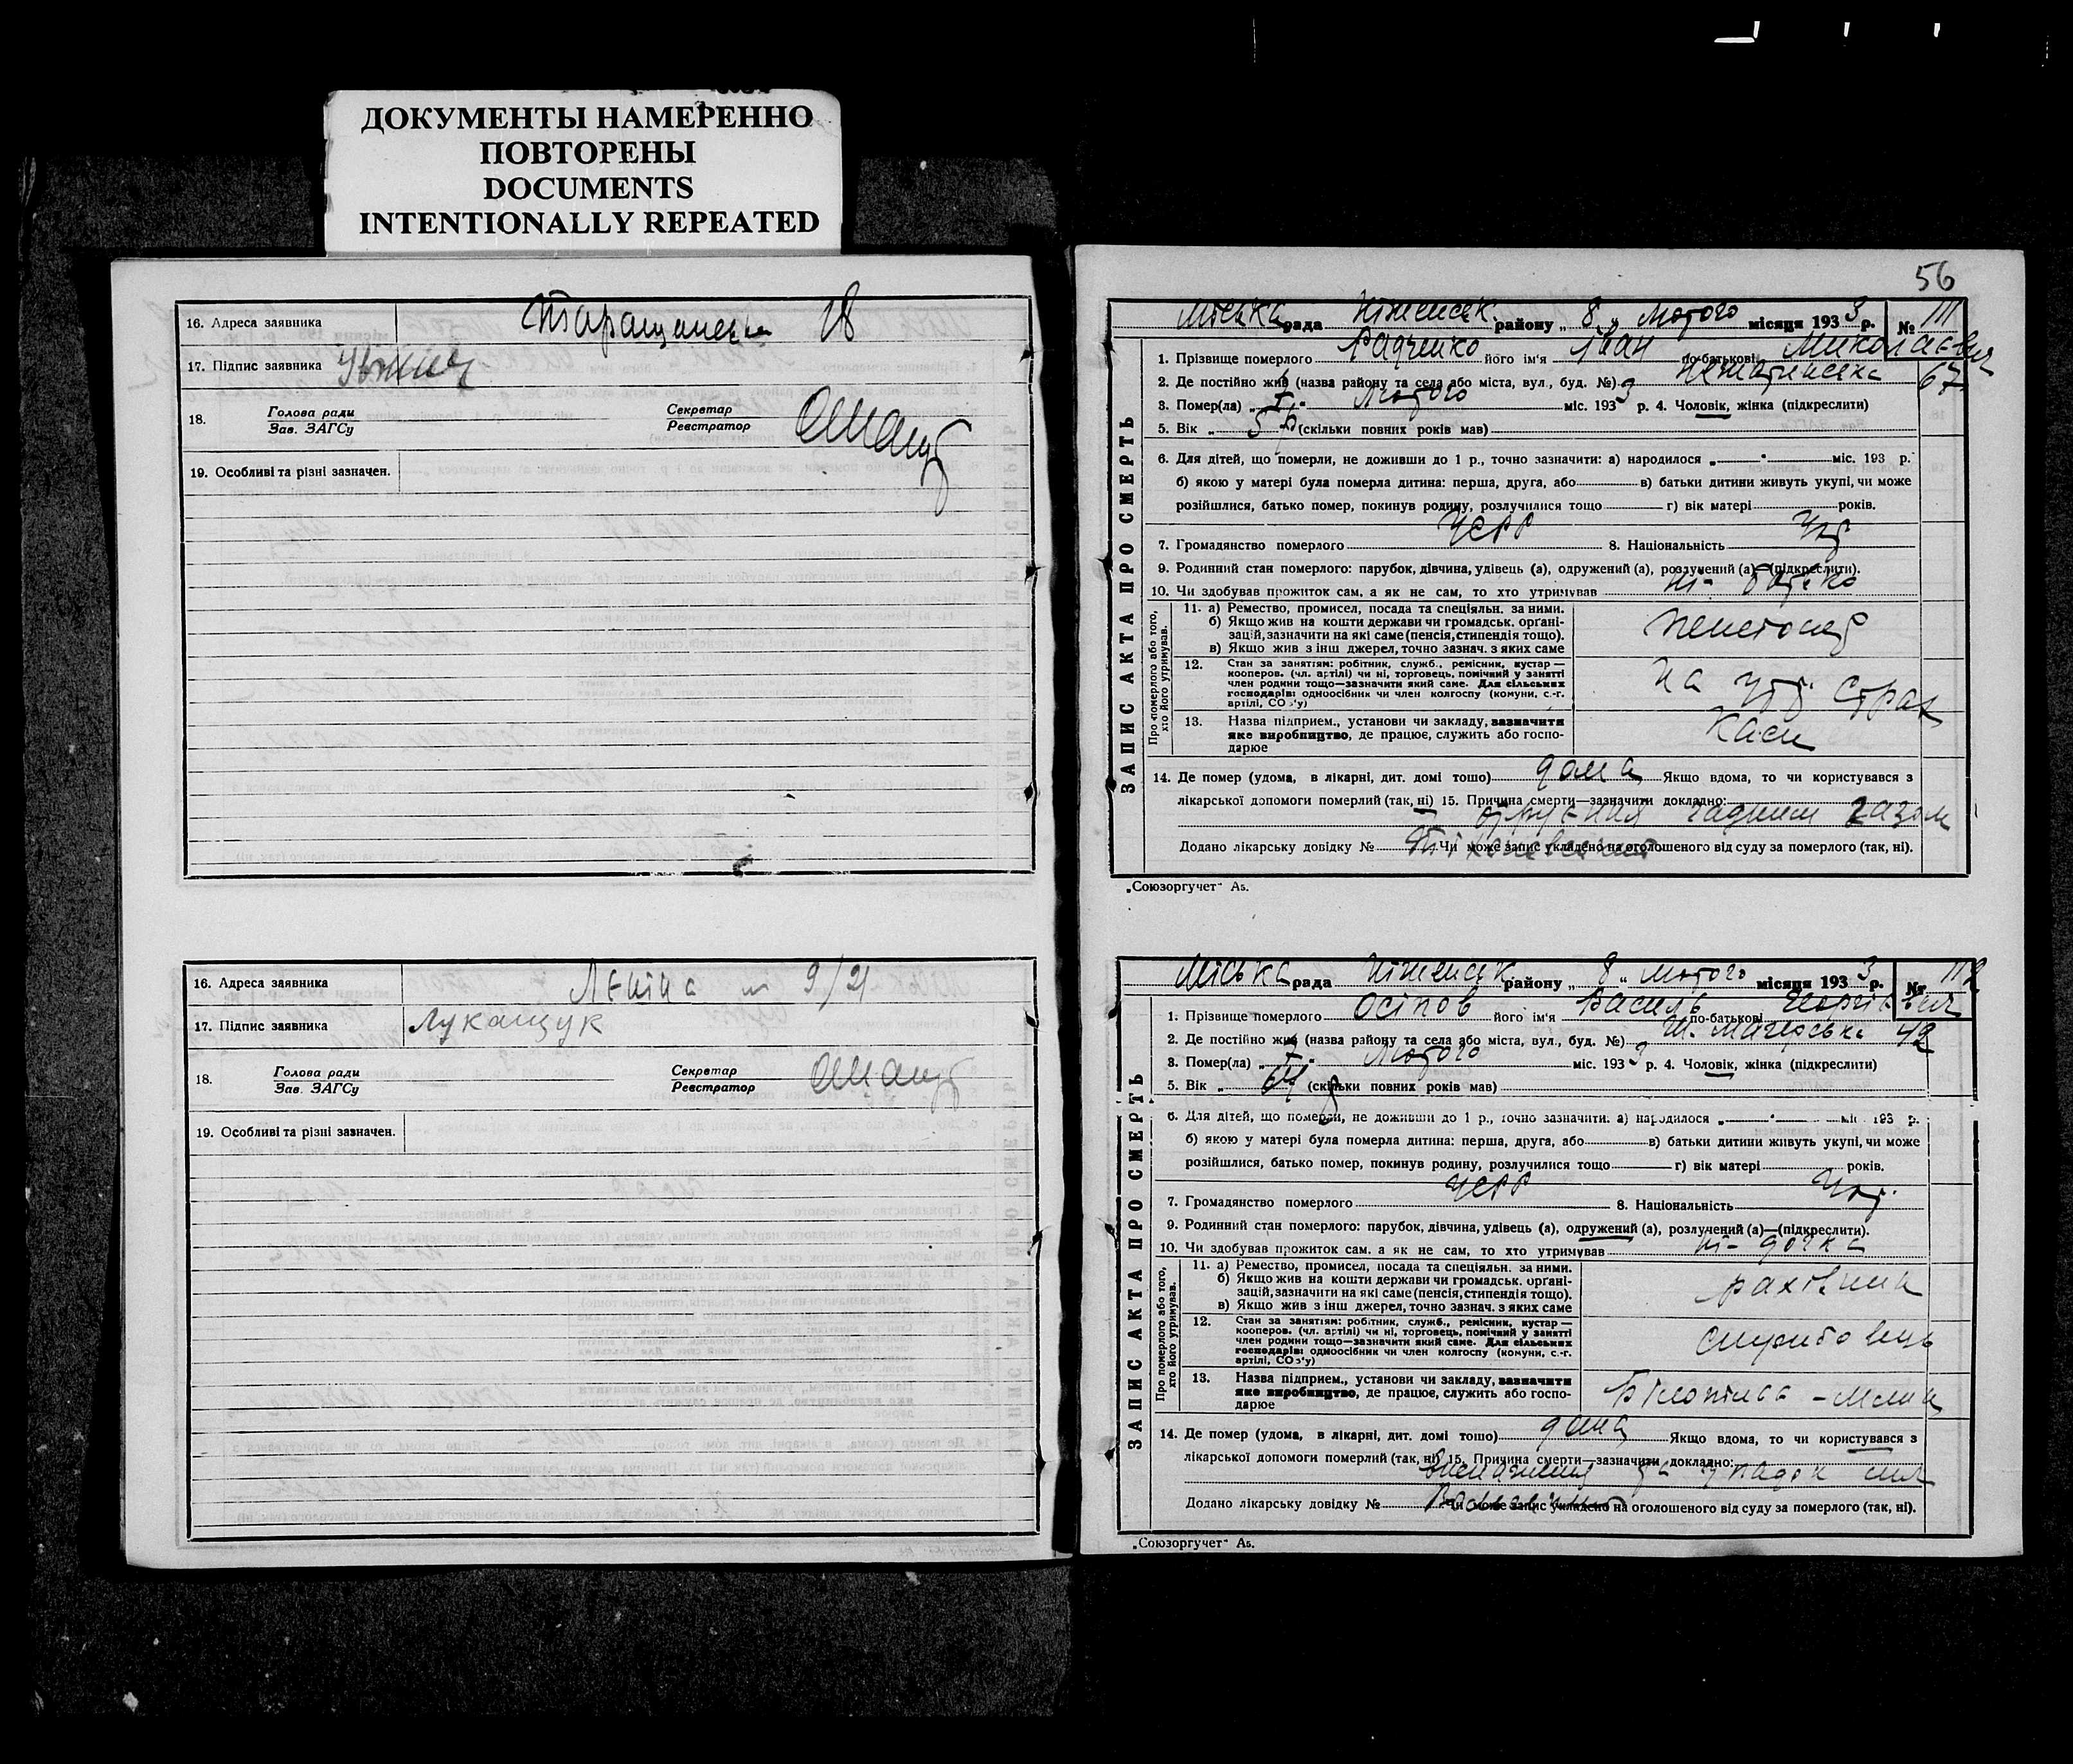 ДОКУМЕНТЫ НАМЕРЕННО
ПОВТОРЕНЫ
DOCUMENTS
INTENTIONALLY REPEATED
16. Адреса заявника 18
17. Підпис заявника
18. Голова ради
Зав. ЗАГСу
Секретар
Реєстратор
19. Особливі та різні зазначен.
16. Адреса заявника Леніна 9/21
17. Підпис заявника Лукащук
18. Голова ради
Зав. ЗАГСу
Секретар
Реєстратор
19. Особливі та різні зазначен.
56
ЗАПИС АКТА ПРО СМЕРТЬ
Міська рада Ніженськ. району „ 8 „ Лютого місяця 1933 р. № 111
1. Прізвище померлого Радченко його ім'я Іван по-батькові Миколаєвич
2. Де постійно жив (назва району та села або міста, вул., буд. №) 67
3. Помер(ла) „ Лютого міс. 1933 р. 4. Чоловік, жінка (підкреслити)
5. Вік „ (скільки повних років мав)
6. Для дітей, що померли, не доживши до 1 р., точно зазначити: а) народилося „ " міс. 193 р.
б) якою у матері була померла дитина: перша, друга, або в) батьки дитини живуть укупі, чи може
розійшлися, батько помер, покинув родину, розлучилися тощо г) вік матері років.
7. Громадянство померлого УСРР 8. Національність Укр
9. Родинний стан померлого: парубок, дівчина, удівець (а), одружений (а), розлучений (а)—(підкреслити).
10. Чи здобував прожиток сам, а як не сам, то хто утримував ні - батько
Про померлого або того, хто його утримував.
11. а) Ремество, промисел, посада та спеціяльн. за ними.
б) Якщо жив на кошти держави чи громадськ. орґані-
зацій, зазначити на які саме (пенсія, стипендія тощо).
в) Якщо жив з інш джерел, точно зазнач. з яких саме
12. Стан за заняттям: робітник, служб., ремісник, кустар —
кооперов. (чл. артілі) чи ні, торговець, помічний у занятті
член родини тощо—зазначити який саме. Для сільських
господарів: одноосібник чи член колгоспу (комуни, с.-г.
артілі, СОЗ'у)
на страх
13. Назва підприєм., установи чи закладу, зазначити
яке виробництво, де працює, служить або госпо-
дарює
каси
14. Де помер (удома, в лікарні, дит. домі тощо) дома Якщо вдома, то чи користувався з
лікарської допомоги померлий (так, ні) 15. Причина смерти—зазначити докладно:
отруєння чадним газом
Додано лікарську довідку № Чи може запис укладено на оголошеного від суду за померлого (так, ні).
„Союзоргучет" А5.
ЗАПИС АКТА ПРО СМЕРТЬ
Міська рада Ніженськ району „ 8 „ Лютого місяця 1933 р. № 112
1. Прізвище померлого Осіпов його ім'я Василь по-батькові Георгієвич
2. Де постійно жив (назва району та села або міста, вул., буд. №) Ш. Магерська 42
3. Помер(ла) „ Лютого міс. 1933 р. 4. Чоловік, жінка (підкреслити)
5. Вік „ (скільки повних років мав)
6. Для дітей, що померли, не доживши до 1 р., точно зазначити: а) народилося „ " міс 193 р.
б) якою у матері була померла дитина: перша, друга, або в) батьки дитини живуть укупі, чи може
розійшлися, батько помер, покинув родину, розлучилися тощо г) вік матері років.
7. Громадянство померлого УСРР 8. Національність Укр.
9. Родинний стан померлого: парубок, дівчина, удівець (а), одружений (а), розлучений (а)—(підкреслити).
10. Чи здобував прожиток сам, а як не сам, то хто утримував ні - дочка
Про померлого або того, хто його утримував.
11. а) Ремество, промисел, посада та спеціяльн. за ними.
б) Якщо жив на кошти держави чи громадськ. орґані-
зацій, зазначити на які саме (пенсія, стипендія тощо).
в) Якщо жив з інш джерел, точно зазнач. з яких саме
12. Стан за заняттям: робітник, служб., ремісник, кустар —
кооперов. (чл. артілі) чи ні, торговець, помічний у занятті
член родини тощо—зазначити який саме. Для сільських
господарів: одноосібник чи член колгоспу (комуни, с.-г.
артілі, СОЗ'у)
службовець
13. Назва підприєм., установи чи закладу, зазначити
яке виробництво, де працює, служить або госпо-
дарює
14. Де помер (удома, в лікарні, дит. домі тощо) дома Якщо вдома, то чи користувався з
лікарської допомоги померлий (так, ні) 15. Причина смерти—зазначити докладно:
виснаження та упадок сил
Додано лікарську довідку № Чи може запис укладено на оголошеного від суду за померлого (так, ні).
„Союзоргучет" А5.